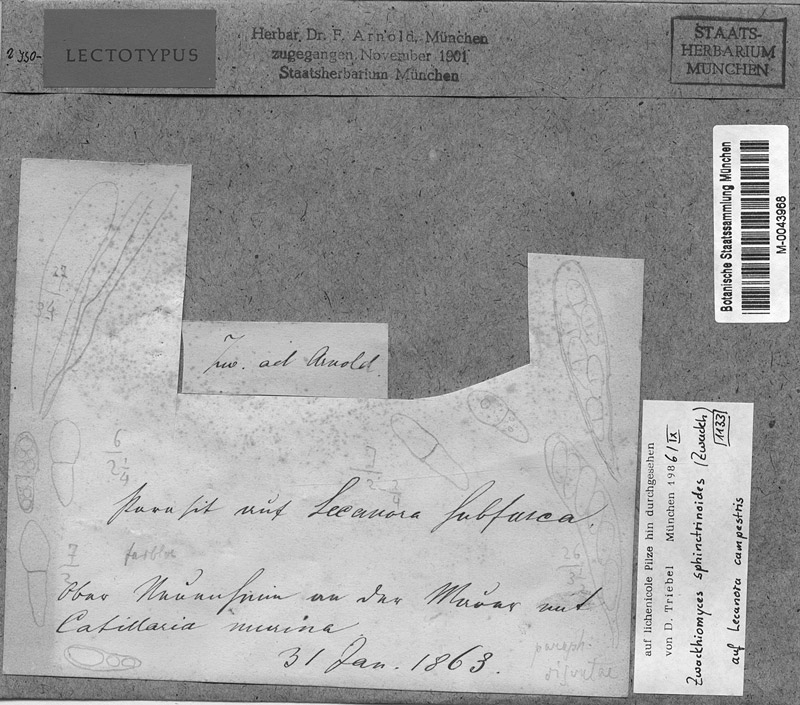 LECTOTYPUS
Herbar. Dr. F. Arnold, München
zugegangen November 1901
Staatsherbarium München
STAATS-
HERBARIUM
MÜNCHEN
Botanische Staatssammlung München
M-0043968
Zw. ad Arnold.
Parasit auf Lecanora subfusca.
farblos
ober Neuenheim an der Mauer mit
Catillaria murina
31 Jan. 1863.
paraph.
auf lichenicole Pilze hin durchgesehen
von D. Triebel München 1986/IX
Zwackhiomyces sphinctrinoides (Zwackh)
1133
auf Lecanora campestris